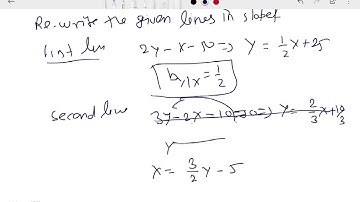 Re-write the given lines in slope
first line 2y - x - 10 => y = 1/2 x + 25
b/x = 1/2
second line 3y - 2x - 10 (20 => y = 2/3 x + 10/3
y
x = 3/2 y - 5